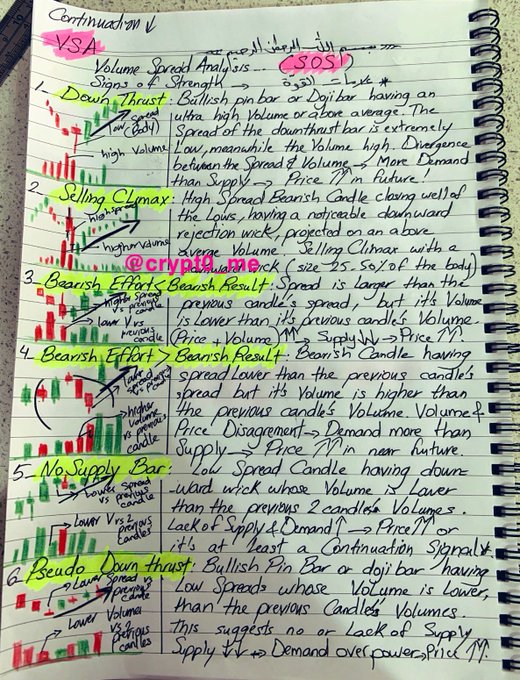 Continuation ↓
VSA
بسم الله الرحمن الرحيم
Volume Spread Analysis... (SOS)
Signs of Strength → علامات القوة *
1. Down Thrust: Bullish pin bar or Doji bar having an
ultra high Volume or above average. The
spread
Low (Body)
Spread of the downthrust bar is extremely
high Volume
Low, meanwhile the Volume high. Divergence
between the Spread & Volume → More Demand
than Supply → Price ↑↑ in future!
2. Selling Climax: High Spread Bearish Candle closing well of
high spread
the Lows, having a noticeable downward
rejection wick, projected on an above
higher Volume
average Volume. Selling Climax with a
@crypt0_me
wick (size 25-50% of the body)
3. Bearish Effort < Bearish Result: Spread is larger than the
higher Spread
vs previous
candle
previous candle's spread, but it's Volume
lower V vs
previous
candle
is Lower than it's previous candle's Volume.
(Price + Volume) ↑↑ → Supply ↓↓ → Price ↑↑.
4. Bearish Effort > Bearish Result: Bearish Candle having
spread Lower than the previous candle's
spread but it's Volume is higher than
higher
Volume
vs previous
candle
the previous candle's Volume. Volume &
Price Disagrement → Demand more than
Supply → Price ↑↑ in near future.
5. No Supply Bar: Low Spread Candle having down-
Lower Spread
vs previous
candle
ward wick whose Volume is Lower
than the previous 2 candle's Volumes.
Lower V vs 2
previous
candles
Lack of Supply & Demand ↑ → Price ↑↑ or
it's at Least a Continuation Signal *.
6. Pseudo Down thrust: Bullish Pin Bar or doji bar having
Lower Spread vs
previous
candle
Low Spreads whose Volume is Lower,
than the previous Candle's Volumes.
Lower Volume
vs 2
previous
candles
This suggests no or Lack of Supply
Supply ↓↓ ↔ Demand overpower → Price ↑↑.